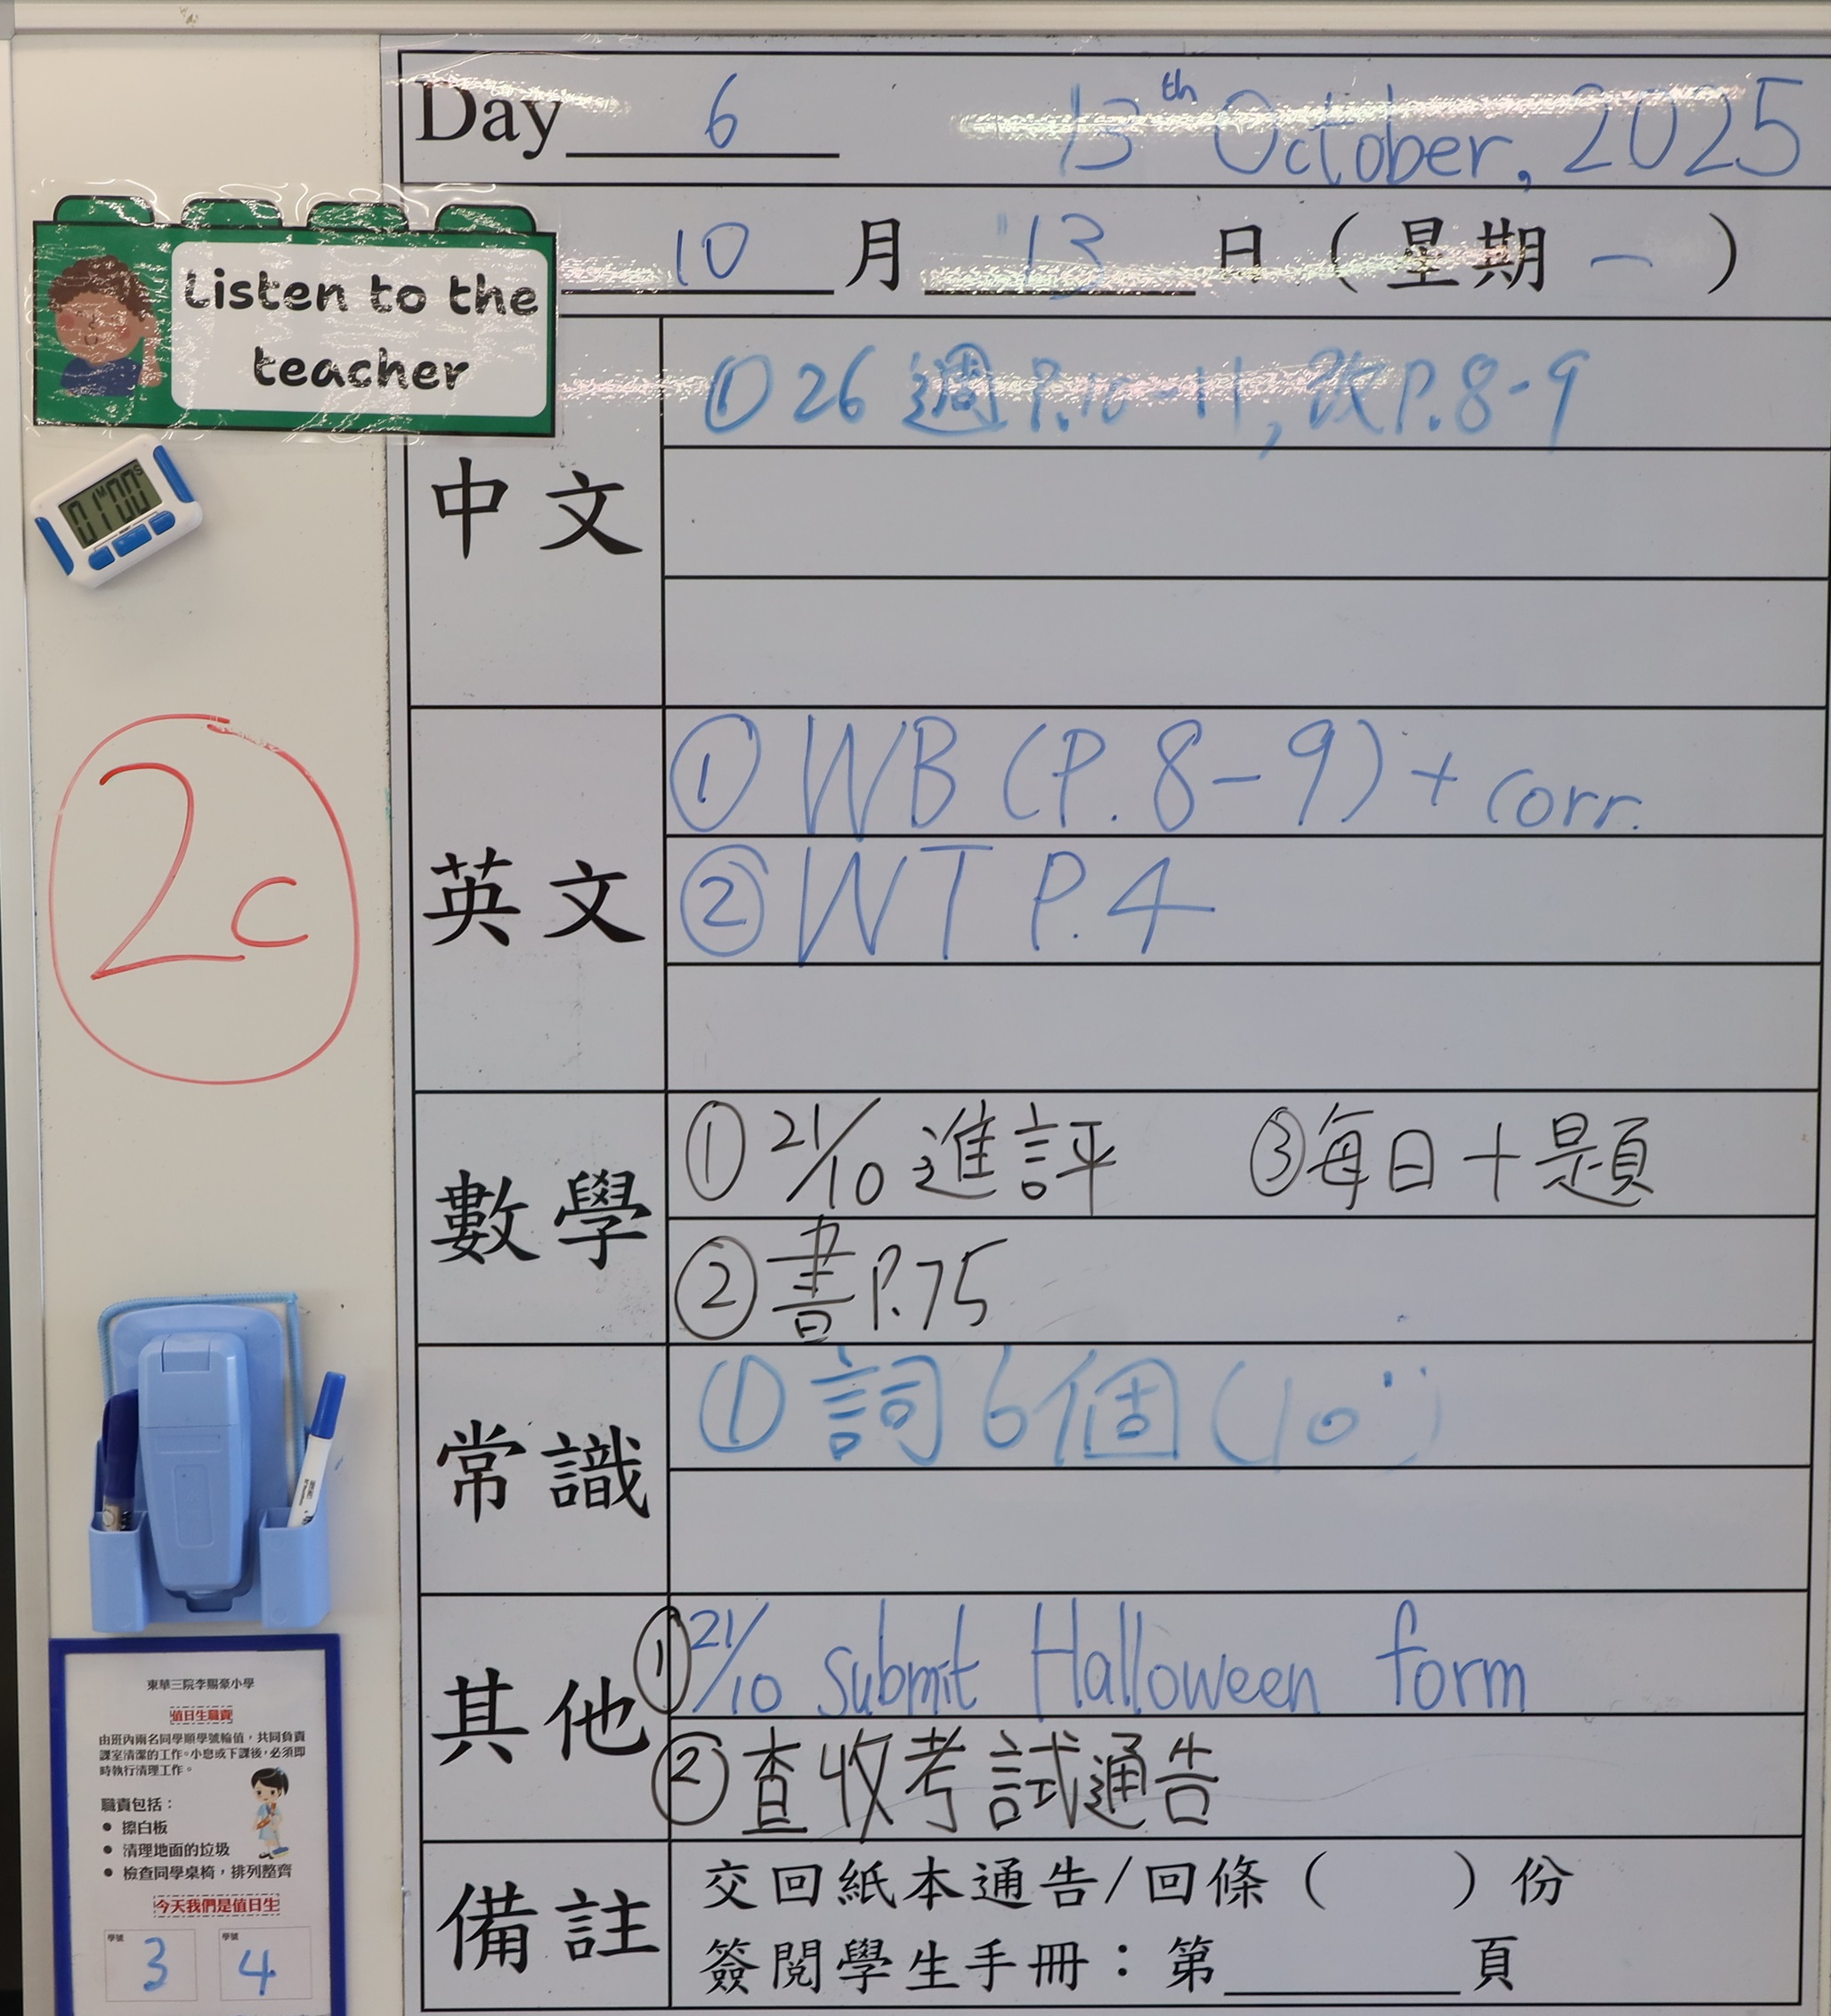 Day 6 13th October, 2025
10 月 13 日 ( 星期 一 )
Listen to the
teacher
01 00
中文
① 26 週 P.10-11, 改 P.8-9
2c
英文
① WB (P.8-9) + corr.
② WT P.4
數學
① 21/10 進評 ③ 每日十題
② 書 P.75
常識
① 詞 6個 (10̈)
其他
① 21/10 submit Halloween form
② 查收考試通告
備註
交回紙本通告/回條 ( ) 份
簽閱學生手冊：第______頁
東華三院李賜豪小學
值日生職責
由班內兩名同學順學號輪值，共同負責
課室清潔的工作。小息或下課後，必須即
時執行清理工作。
職責包括：
• 擦白板
• 清理地面的垃圾
• 檢查同學桌椅，排列整齊
今天我們是值日生
學號 3 學號 4